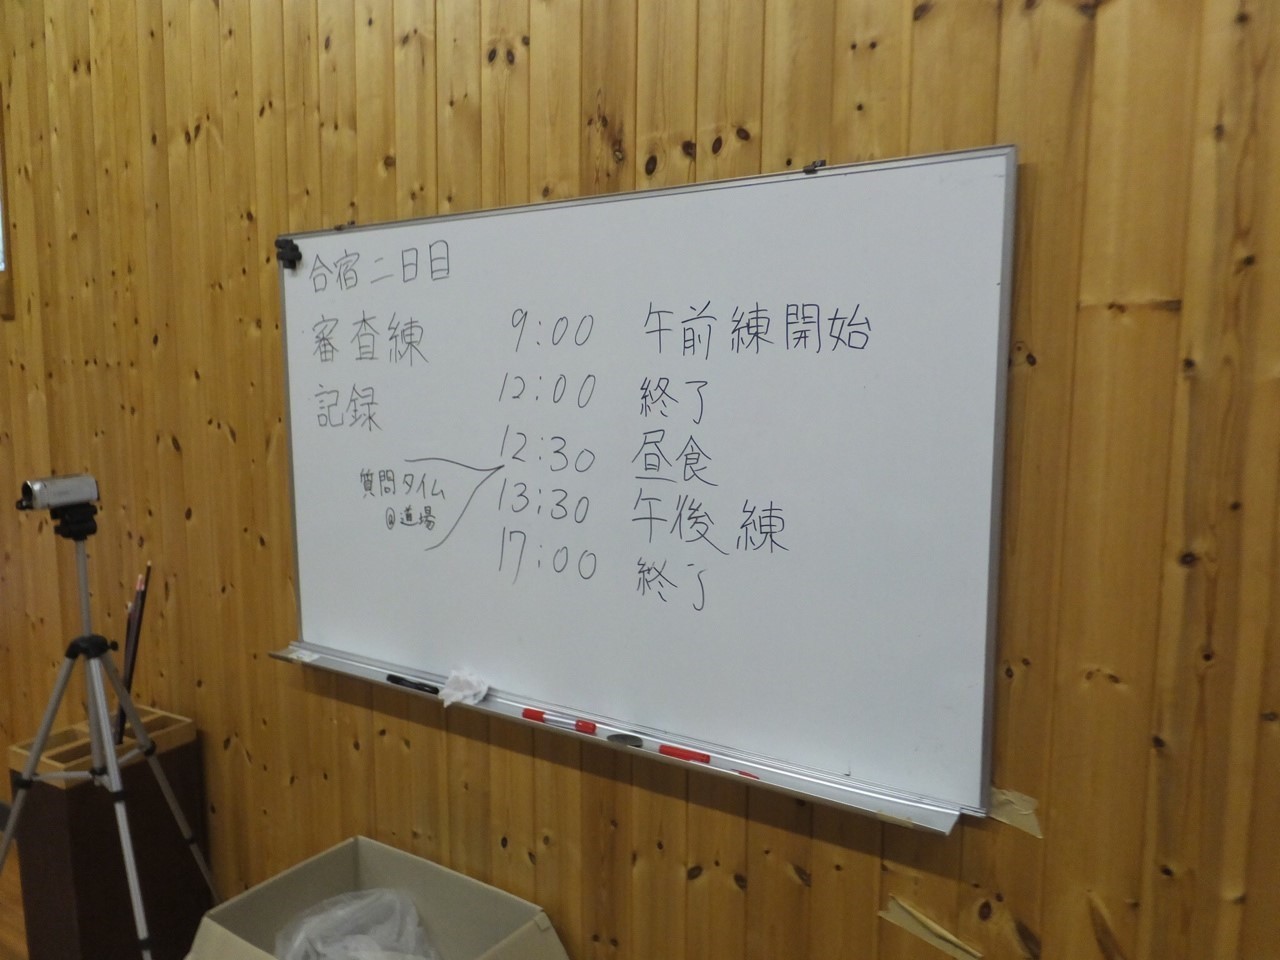 合宿二日目
審査練
記録
9:00 午前練開始
12:00 終了
12:30 昼食
13:30 午後練
17:00 終了
質問タイム
@道場